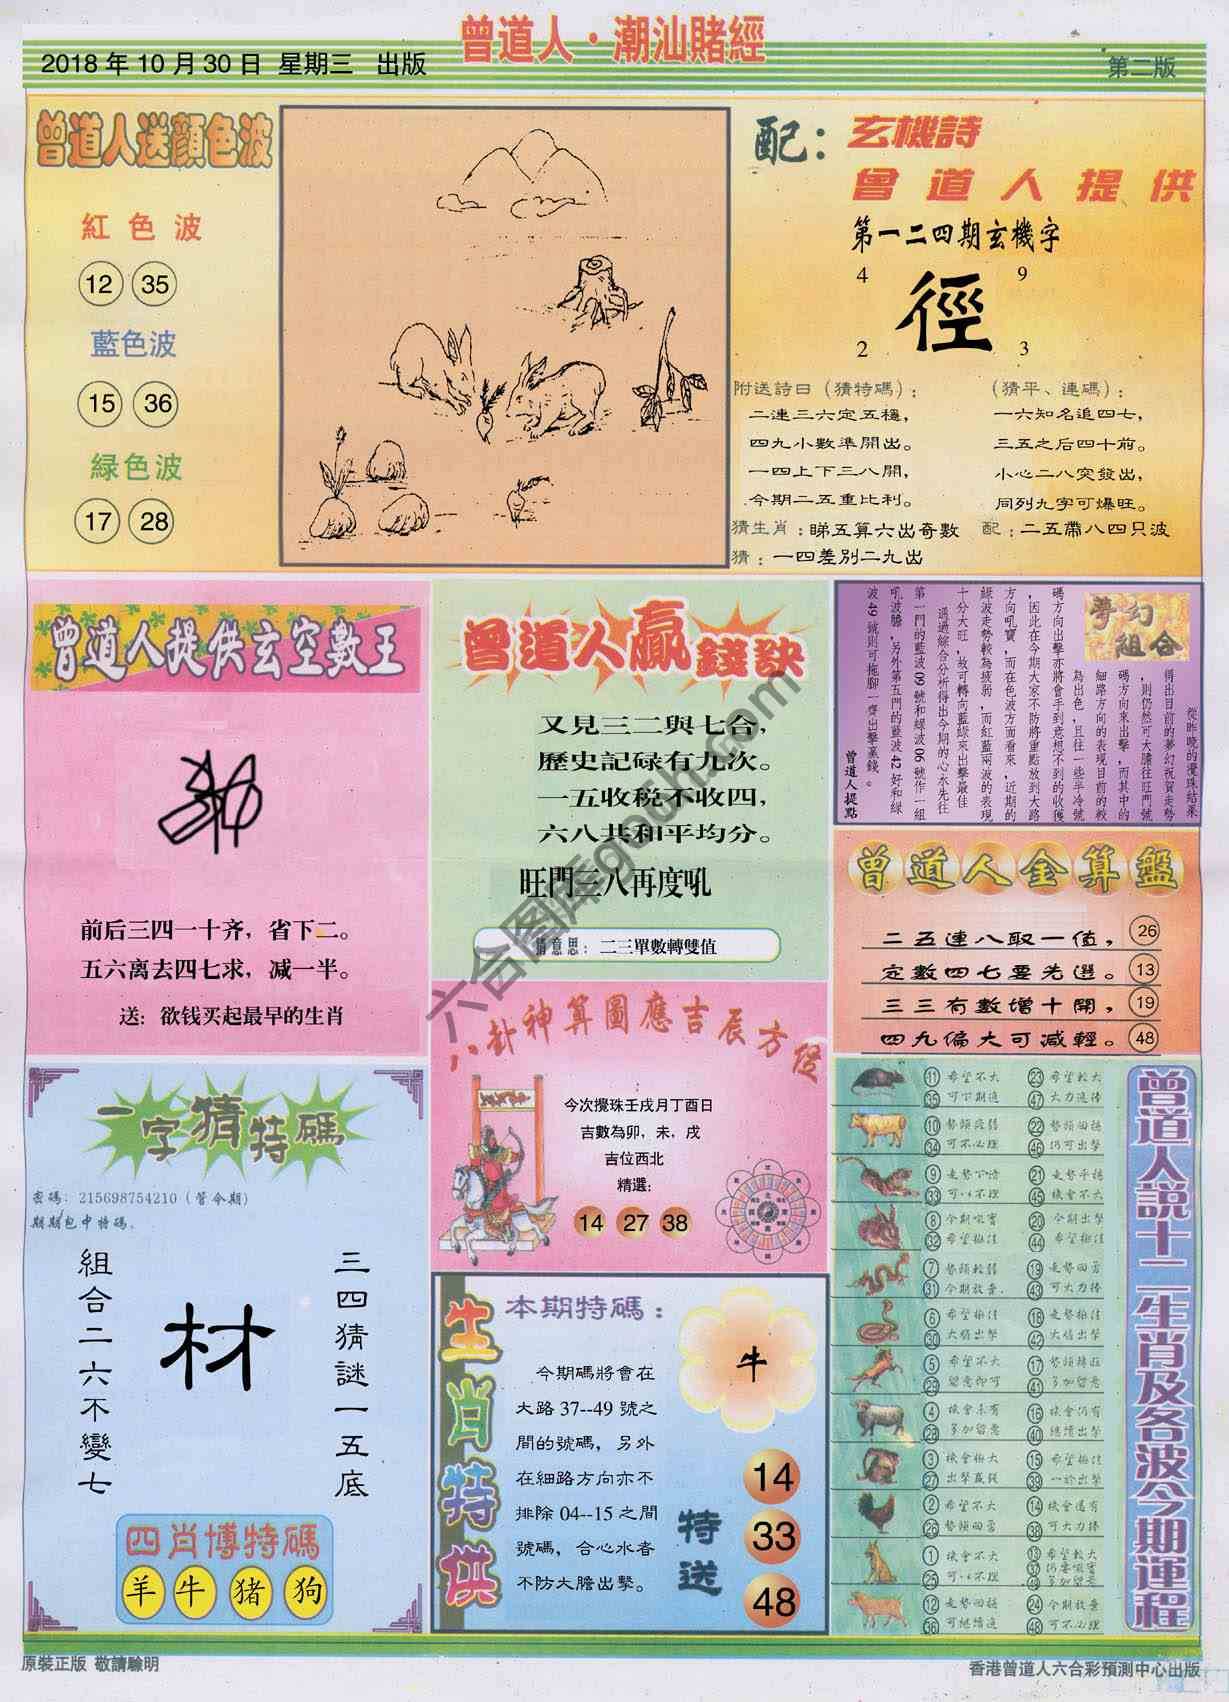 曾道人·潮汕賭經
2018年10月30日 星期三 出版
第二版
曾道人送顏色波
紅色波
12 35
藍色波
15 36
緑色波
17 28
配：玄機詩
曾道人提供
第一二四期玄機字
4 9
徑
2 3
附送詩曰（猜特碼）：
二連三六定五穩，
四九小數準開出。
一四上下三八開，
今期二五重比利。
（猜平、連碼）：
一六知名追四七，
三五之后四十前。
小心二八突發出，
同列九字可爆旺。
猜生肖：睇五算六出奇數
配：二五帶八四只波
猜：一四差別二九出
曾道人提供玄空數王
前后三四一十齐，省下二。
五六离去四七求，减一半。
送：欲钱买起最早的生肖
曾道人贏錢訣
又見三二與七合，
歷史記碌有九次。
一五收税不收四，
六八共和平均分。
旺門三八再度吼
猜意思：二三單數轉雙值
夢幻組合
從昨晚的攪珠結果
得出目前的夢幻祝賀走勢
，則仍然可大膽往旺門號
碼方向來出擊，而其中的
細路方向的表現目前的較
為出色，且往一些半冷號
碼方向出擊亦將會手到意想不到的收獲
，因此在今期大家不防將重點放到大路
方向吼寶，而在色波方面看來，近期的
緑波走勢較為疲弱，而紅藍兩波的表現
十分大旺，故可轉向藍緑來出擊最佳
通過綜合分析得出今期的心水先往
第一門的藍波09號和緑波06號作一組
吼波膽，另外第五門的藍波42好和緑
波49號則可拖腳一齊出擊贏錢。
曾道人提點
曾道人金算盤
二五連八取一值， 26
定數四七要先選。 13
三三有數增十開， 19
四九偏大可減輕。 48
八卦神算圖應吉辰方位
今次攪珠壬戌月丁酉日
吉數為卯，未，戌
吉位西北
精選：
14 27 38
一字猜特碼
密碼：215698754210（管今期）
期期包中特碼。
三四猜謎一五底
材
組合二六不變七
四肖博特碼
羊 牛 猪 狗
生肖特供
本期特碼：
今期碼將會在
大路37--49號之
間的號碼，另外
在細路方向亦不
排除04--15之間
號碼，合心水者
不防大膽出擊。
牛
特送
14
33
48
曾道人説十二生肖及各波今期運程
11 希望不大 23 希望較大
35 可下期追 47 大力追捧
10 勢頭疲弱 22 勢頭回揚
34 可不必理 46 仍可出擊
9 21 走勢平穩
33 可以不理 45 機會不大
8 今期吼寶 20 今期出擊
32 希望極佳 44 希望極佳
7 勢頭較弱 19 走勢回勇
31 今期放棄 43 可大力捧
6 希望極佳 18 走勢極佳
30 大膽出擊 42 大膽出擊
5 希望不大 17 勢頭轉旺
29 留意即可 41 多加留意
4 機會未有 16 機會仍有
28 多加留意 40 繼續出擊
3 機會極大 15 希望極佳
27 出擊贏錢 39 一於出擊
2 希望不大 14 機會還有
26 勢頭回勇 38 可大力捧
1 機會不大 13 希望較大
25 可以不理 37 仍要吼寶
49 多加留意
12 走勢回揚 24 今期放棄
36 可繼續追 48 可不必理
六合图库goohi.com
原裝正版 敬請驗明
香港曾道人六合彩預測中心出版